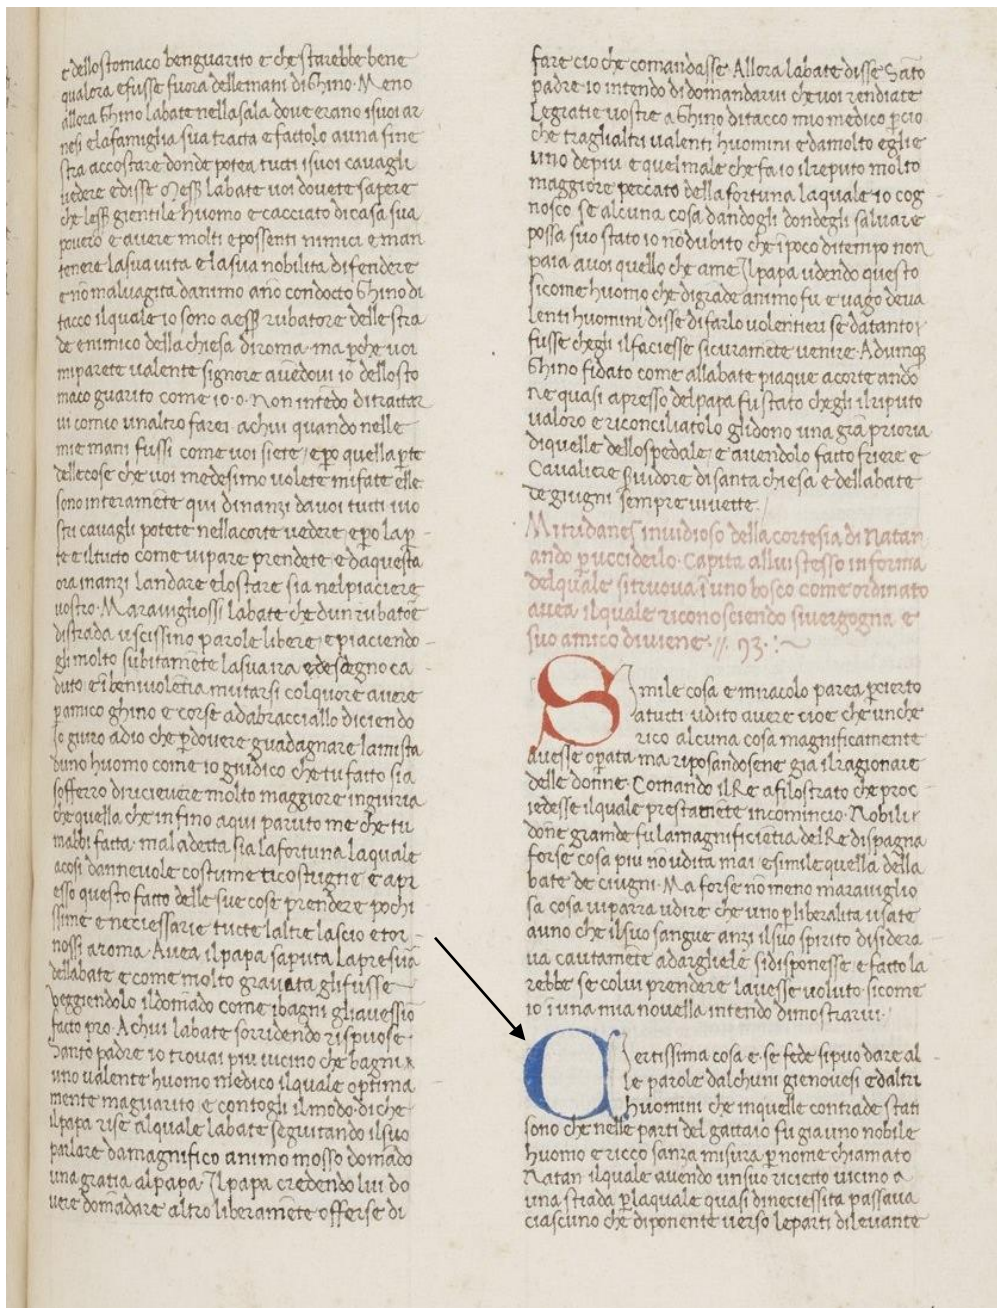 e dello stomaco benguarito e che starebbe bene
qualora e fusse fuora dellemani di Ghino. Meno
allora Ghino labate nella sala dove erano isuoi ar
nesi e la famiglia sua tracta e factolo a una fine
stra accostare donde potea tucti isuoi cavagli
vedere e disse Mess labate voi dovete sapere
che less gientile huomo e cacciato di casa sua
povero e avere molti e possenti nimici e man
tenere la sua vita e la sua nobilita difendere
e nō malvagita danimo ano condocto Ghino di
tacco il quale io sono a ess rubatore delle stra
de e nimico della chiesa di roma. ma pche voi
mi parete valente signore avedovi io dello sto
maco guarito come io. o. Non intēdo di trattar
vi comio unaltro farei. achui quando nelle
mie mani fussi come voi siete / epo quella pte
delle cose che voi medesimo volete mi fate elle
sono interamēte qui dinanzi da voi tucti ivo
stri cavagli potete nella corte vedere epo la p
te e il tucto come vi pare prendete e da questa
ora inanzi landare e lo stare sia nel piaciere
vostro. Maravigliossi labate che dun rubatoe
di strada uscissino parole libere / e piaciendo
gli molto subitamēte la sua ira e desdegno ca
duto. e ī benivolētia mutarsi col quore avere
p amico ghino e corse ad abracciallo diciendo
Io giuro adio che p dovere guadagnare lamista
duno huomo come io giudico che tu fatto sia
sofferro di ricievere molto maggiore ingiuria
che quella che infino aqui paruto me che tu
mabbi fatta. maladetta sia la fortuna la quale
a cosi dannevole costume ti costrigne e apr
esso questo fatto delle sue cose prendere pochi
ssime e neciessarie tucte laltre lascio e tor
nossi a roma. Avea il papa saputa la presura
dellabate e come molto gravata gli fusse
veggiendolo il domādo come ibagni gli avessiō
facto pro. Achui labate sorridendo rispuose
Santo padre io trovai piu vicino che bagni
uno valente huomo medico il quale optima
mente ma guarito. e contogli il modo. di che
il papa rise al quale labate seguitando il suo
parlare da magnifico animo mosso domādo
una gratia al papa. Il papa credendo lui do
vere domādare altro liberamēte offerse di
fare cio che comandasse. Allora labate disse Sāto
padre io intendo di domandarvi che voi rendiate
Le gratie vostre a Ghino di tacco mio medico p cio
che tra gli altri valenti huomini e da molto egli e
uno de piu e quel male che fa io il reputo molto
maggiore peccato della fortuna la quale io cog
nosco se alcuna cosa dandogli dondegli salvare
possa suo stato io nō dubito che ī poco di tempo non
paia a voi quello che a me. Il papa udendo questo
sicome huomo che di grāde animo fu e vago de va
lenti huomini disse di farlo volentieri se da tanto
fusse chegli il faciesse sicuramēte venire. Adumq
Ghino fidato come allabate piaque a corte ando
Ne quasi apresso del papa fu stato chegli il riputo
valoro e riconciliatolo gli dono una grā prioria
di quelle dello spedale / e avendolo fatto friere e
Cavaliere Svidore di santa chiesa e dellabate
de giugni sempre vivette. /
Mitridanes invidioso della cortesia di Natan
ando p ucciderlo. Capita allui stesso informa
del quale si truova ī uno bosco come ordinato
avea il quale riconosciendo si vergogna e
suo amico diviene. //. 93. :~
Simile cosa e miracolo parea p cierto
a tucti udito avere cioe che un che
rico alcuna cosa magnificamente
avesse opata ma riposandosene gia il ragionare
delle donne. Comando il Re a filostrato che proc
iedesse il quale prestamēte incomincio. Nobili
dōne grande fu la magnificiētia del Re di spagna
forse cosa piu no udita mai e simile quella della
bate de ciugni. Ma forse nō meno maraviglio
sa cosa vi parra udire che uno p liberalita usate
a uno che il suo sangue anzi il suo spirito disidera
va cautamēte a dargliele si disponesse e facto la
rebbe se colui prendere lavesse voluto. sicome
io ī una mia novella intendo dimostrarvi. /
Ciertissima cosa e. se fede si puo dare al
le parole dalchuni gienovesi e daltri
huomini che in quelle contrade stati
sono che nelle parti del gattaio fu gia uno nobile
huomo e ricco sanza misura p nome chiamato
Natan il quale avendo un suo ricietto vicino a
una strada p la quale quasi di neciessita passava
ciascuno che di ponente verso le parti di levante